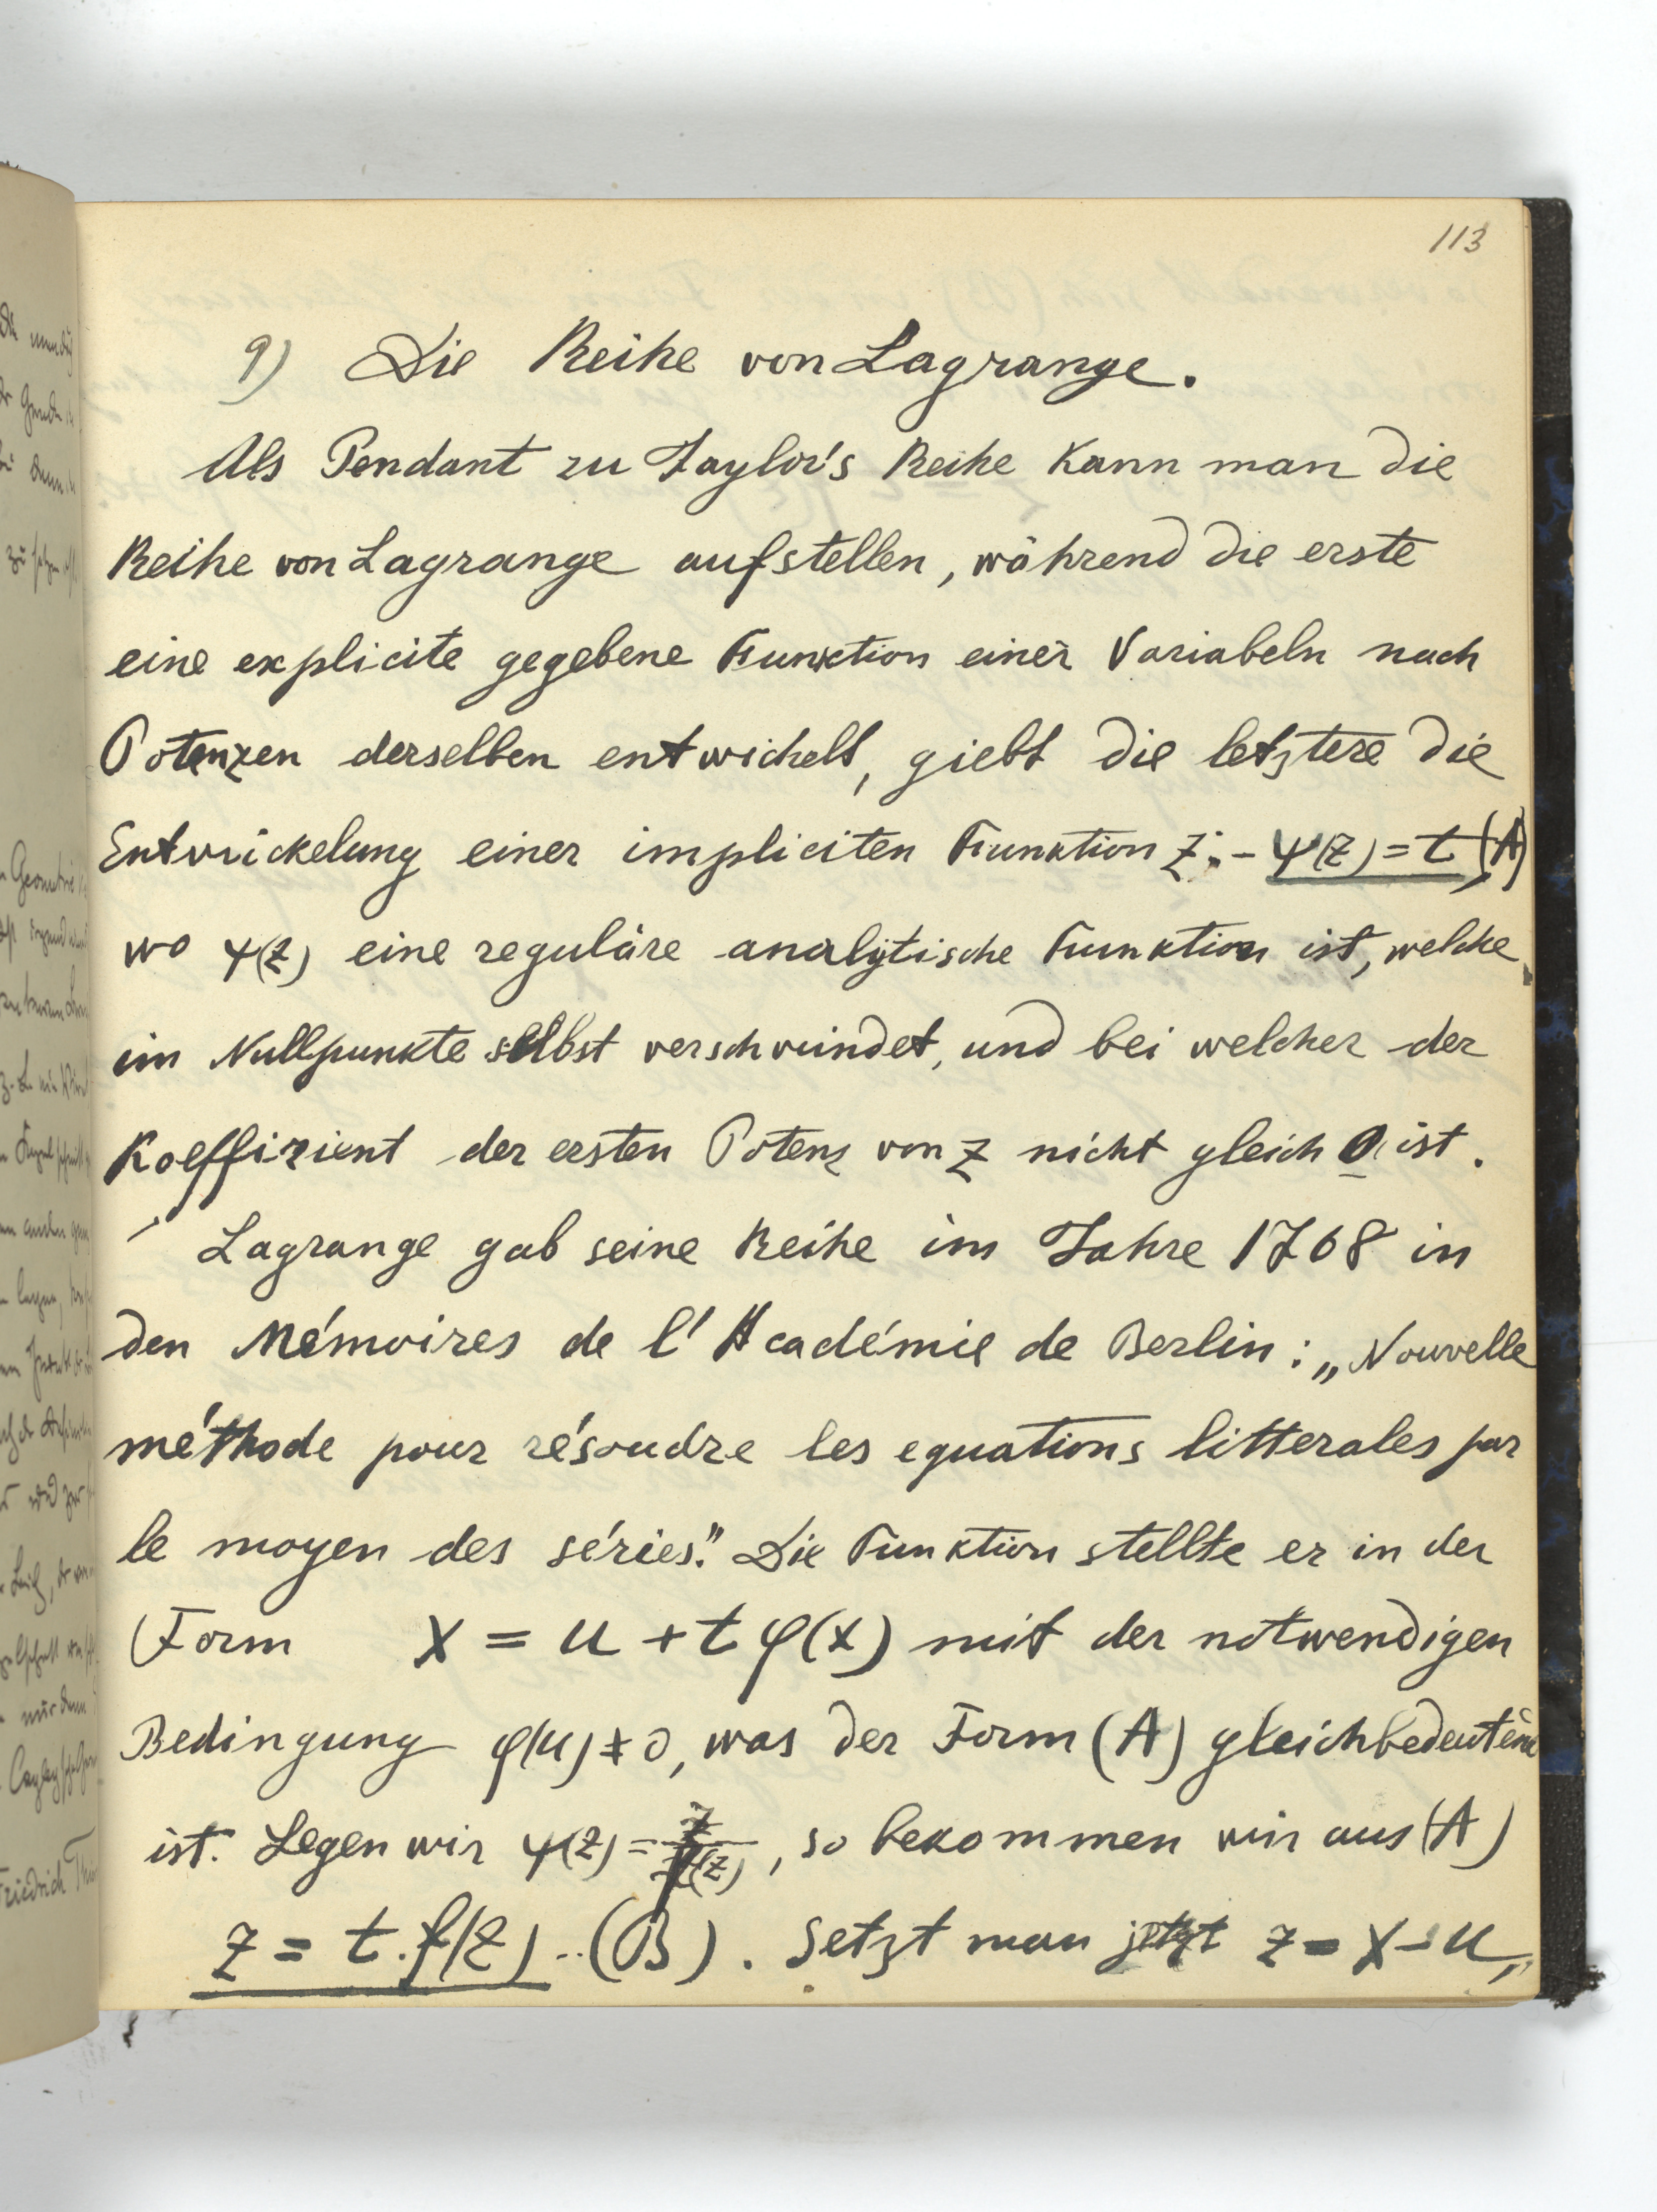 113
9) Die Reihe von Lagrange.
Als Pendant zu Taylor's Reihe kann man die
Reihe von Lagrange aufstellen, während die erste
eine explicite gegebene Funktion einer Variabeln nach
Potenzen derselben entwickelt, giebt die letztere die
Entwickelung einer impliciten Funktion z: - ψ(z) = t, (A)
wo ψ(z) eine reguläre analytische Funktion ist, welche
im Nullpunkte selbst verschwindet, und bei welcher der
Koeffizient der ersten Potenz von z nicht gleich 0 ist.
Lagrange gab seine Reihe im Jahre 1768 in
den Mémoires de l'Académie de Berlin: „Nouvelle
méthode pour résoudre les equations litterales par
le moyen des séries." Die Funktion stellte er in der
Form x = u + t φ(x) mit der notwendigen
Bedingung φ(u) ≠ 0, was der Form (A) gleichbedeutend
ist. Legen wir ψ(z) = z/f(z), so bekommen wir aus (A)
z = t. f(z) .. (B). Setzt man jetzt z = x - u,